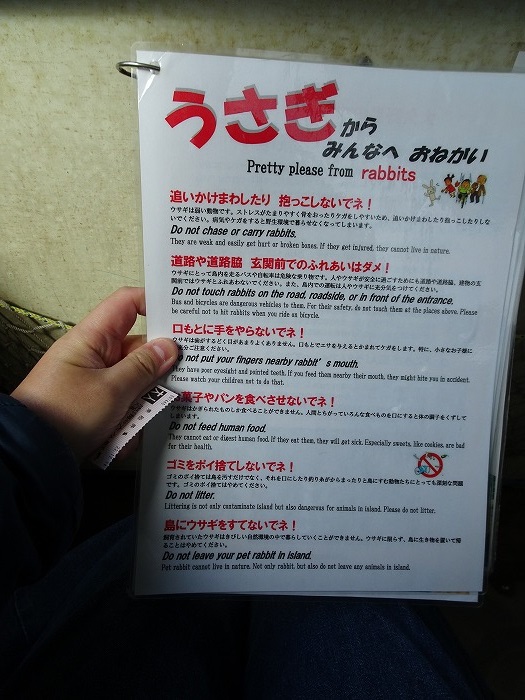 うさぎから
みんなへ おねがい
Pretty please from rabbits
追いかけまわしたり 抱っこしないでネ！
ウサギは弱い動物です。ストレスがたまりやすく骨をおったりケガをしやすいため、追いかけまわしたり抱っこしたりしな
いでください。病気やケガをすると野生環境で暮らせなくなってしまいます。
Do not chase or carry rabbits.
They are weak and easily get hurt or broken bones. If they get injured, they cannot live in nature.
道路や道路脇 玄関前でのふれあいはダメ！
ウサギにとって島内を走るバスや自転車は危険な乗り物です。人やウサギが安全に過ごすためにも道路や道路脇、建物の玄
関前ではウサギとふれあわないでください。また、島内での運転は人やウサギに充分気をつけてください。
Do not touch rabbits on the road, roadside, or in front of the entrance.
Bus and bicycles are dangerous vehicles to them. For their safety, do not touch them at the places above. Please
be careful not to hit rabbits when you ride an bicycle.
口もとに手をやらないでネ！
ウサギは歯がするどく目があまりよくありません。口もとでエサを与えるとかまれてケガをします。特に、小さなお子様に
分ご注意ください。
not put your fingers nearby rabbit's mouth.
They have poor eyesight and pointed teeth. If you feed them nearby their mouth, they might bite you in accident.
Please watch your children not to do that.
菓子やパンを食べさせないでネ！
ウサギはかぎられたものしか食べることができません。人間とちがっていろんな食べものを口にすると体の調子をくずして
しまいます。
Do not feed human food.
They cannot eat or digest human food. If they eat them, they will get sick. Especially sweets, like cookies, are bad
for their health.
ゴミをポイ捨てしないでネ！
ゴミのポイ捨ては島を汚すだけでなく、それを口にしたり釣り糸がからまったりと島にすむ動物たちにとっても深刻な問題
です。ゴミのポイ捨てはやめてください。
Do not litter.
Littering is not only contaminate island but also dangerous for animals in island. Please do not litter.
島にウサギをすてないでネ！
飼育されていたウサギはきびしい自然環境の中で暮らしていくことができません。ウサギに限らず、島に生き物を置いて帰
ることはやめてください。
Do not leave your pet rabbit in island.
Pet rabbit cannot live in nature. Not only rabbit, but also do not leave any animals in island.